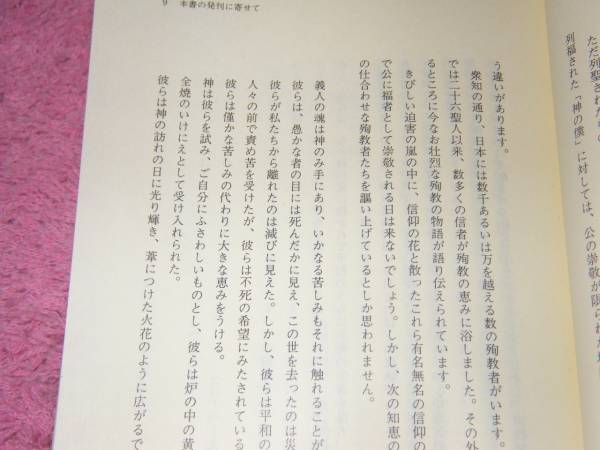 9　本書の発刊に寄せて
ただ列聖された
列福された「神の僕」に対しては、公の崇敬が限られた
う違いがあります。
衆知の通り、日本には数千あるいは万を越える数の殉教者がいます。
では二十六聖人以来、数多くの信者が殉教の恵みに浴しました。その外
るところに今なお壮烈な殉教の物語が語り伝えられています。
きびしい迫害の嵐の中に、信仰の花と散ったこれら有名無名の信仰の
で公に福者として崇敬される日は来ないでしょう。しかし、次の知恵の
の仕合わせな殉教者たちを謳い上げているとしか思われません。
義人の魂は神のみ手にあり、いかなる苦しみもそれに触れることが
彼らは、愚かな者の目には死んだかに見え、この世を去ったのは災
彼らが私たちから離れたのは滅びに見えた。しかし、彼らは平和の
人々の前で責め苦を受けたが、彼らは不死の希望にみたされている
彼らは僅かな苦しみの代わりに大きな恵みをうける。
神は彼らを試み、ご自分にふさわしいものとし、彼らは炉の中の黄
全焼のいけにえとして受け入れられた。
彼らは神の訪れの日に光り輝き、葦につけた火花のように広がるで